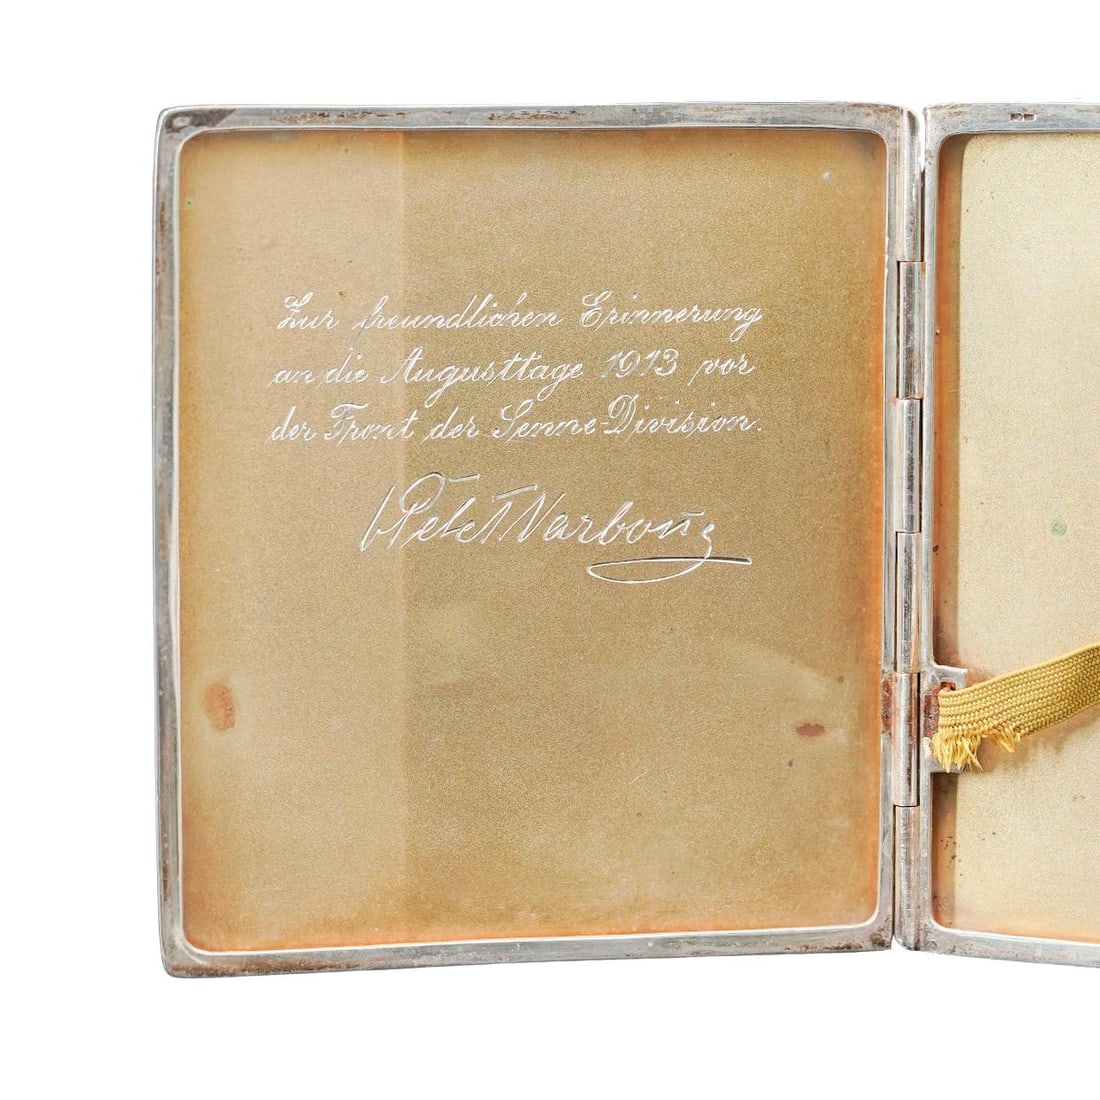 Zur freundlichen Erinnerung
an die Augusttage 1913 vor
der Front der Senne-Division.